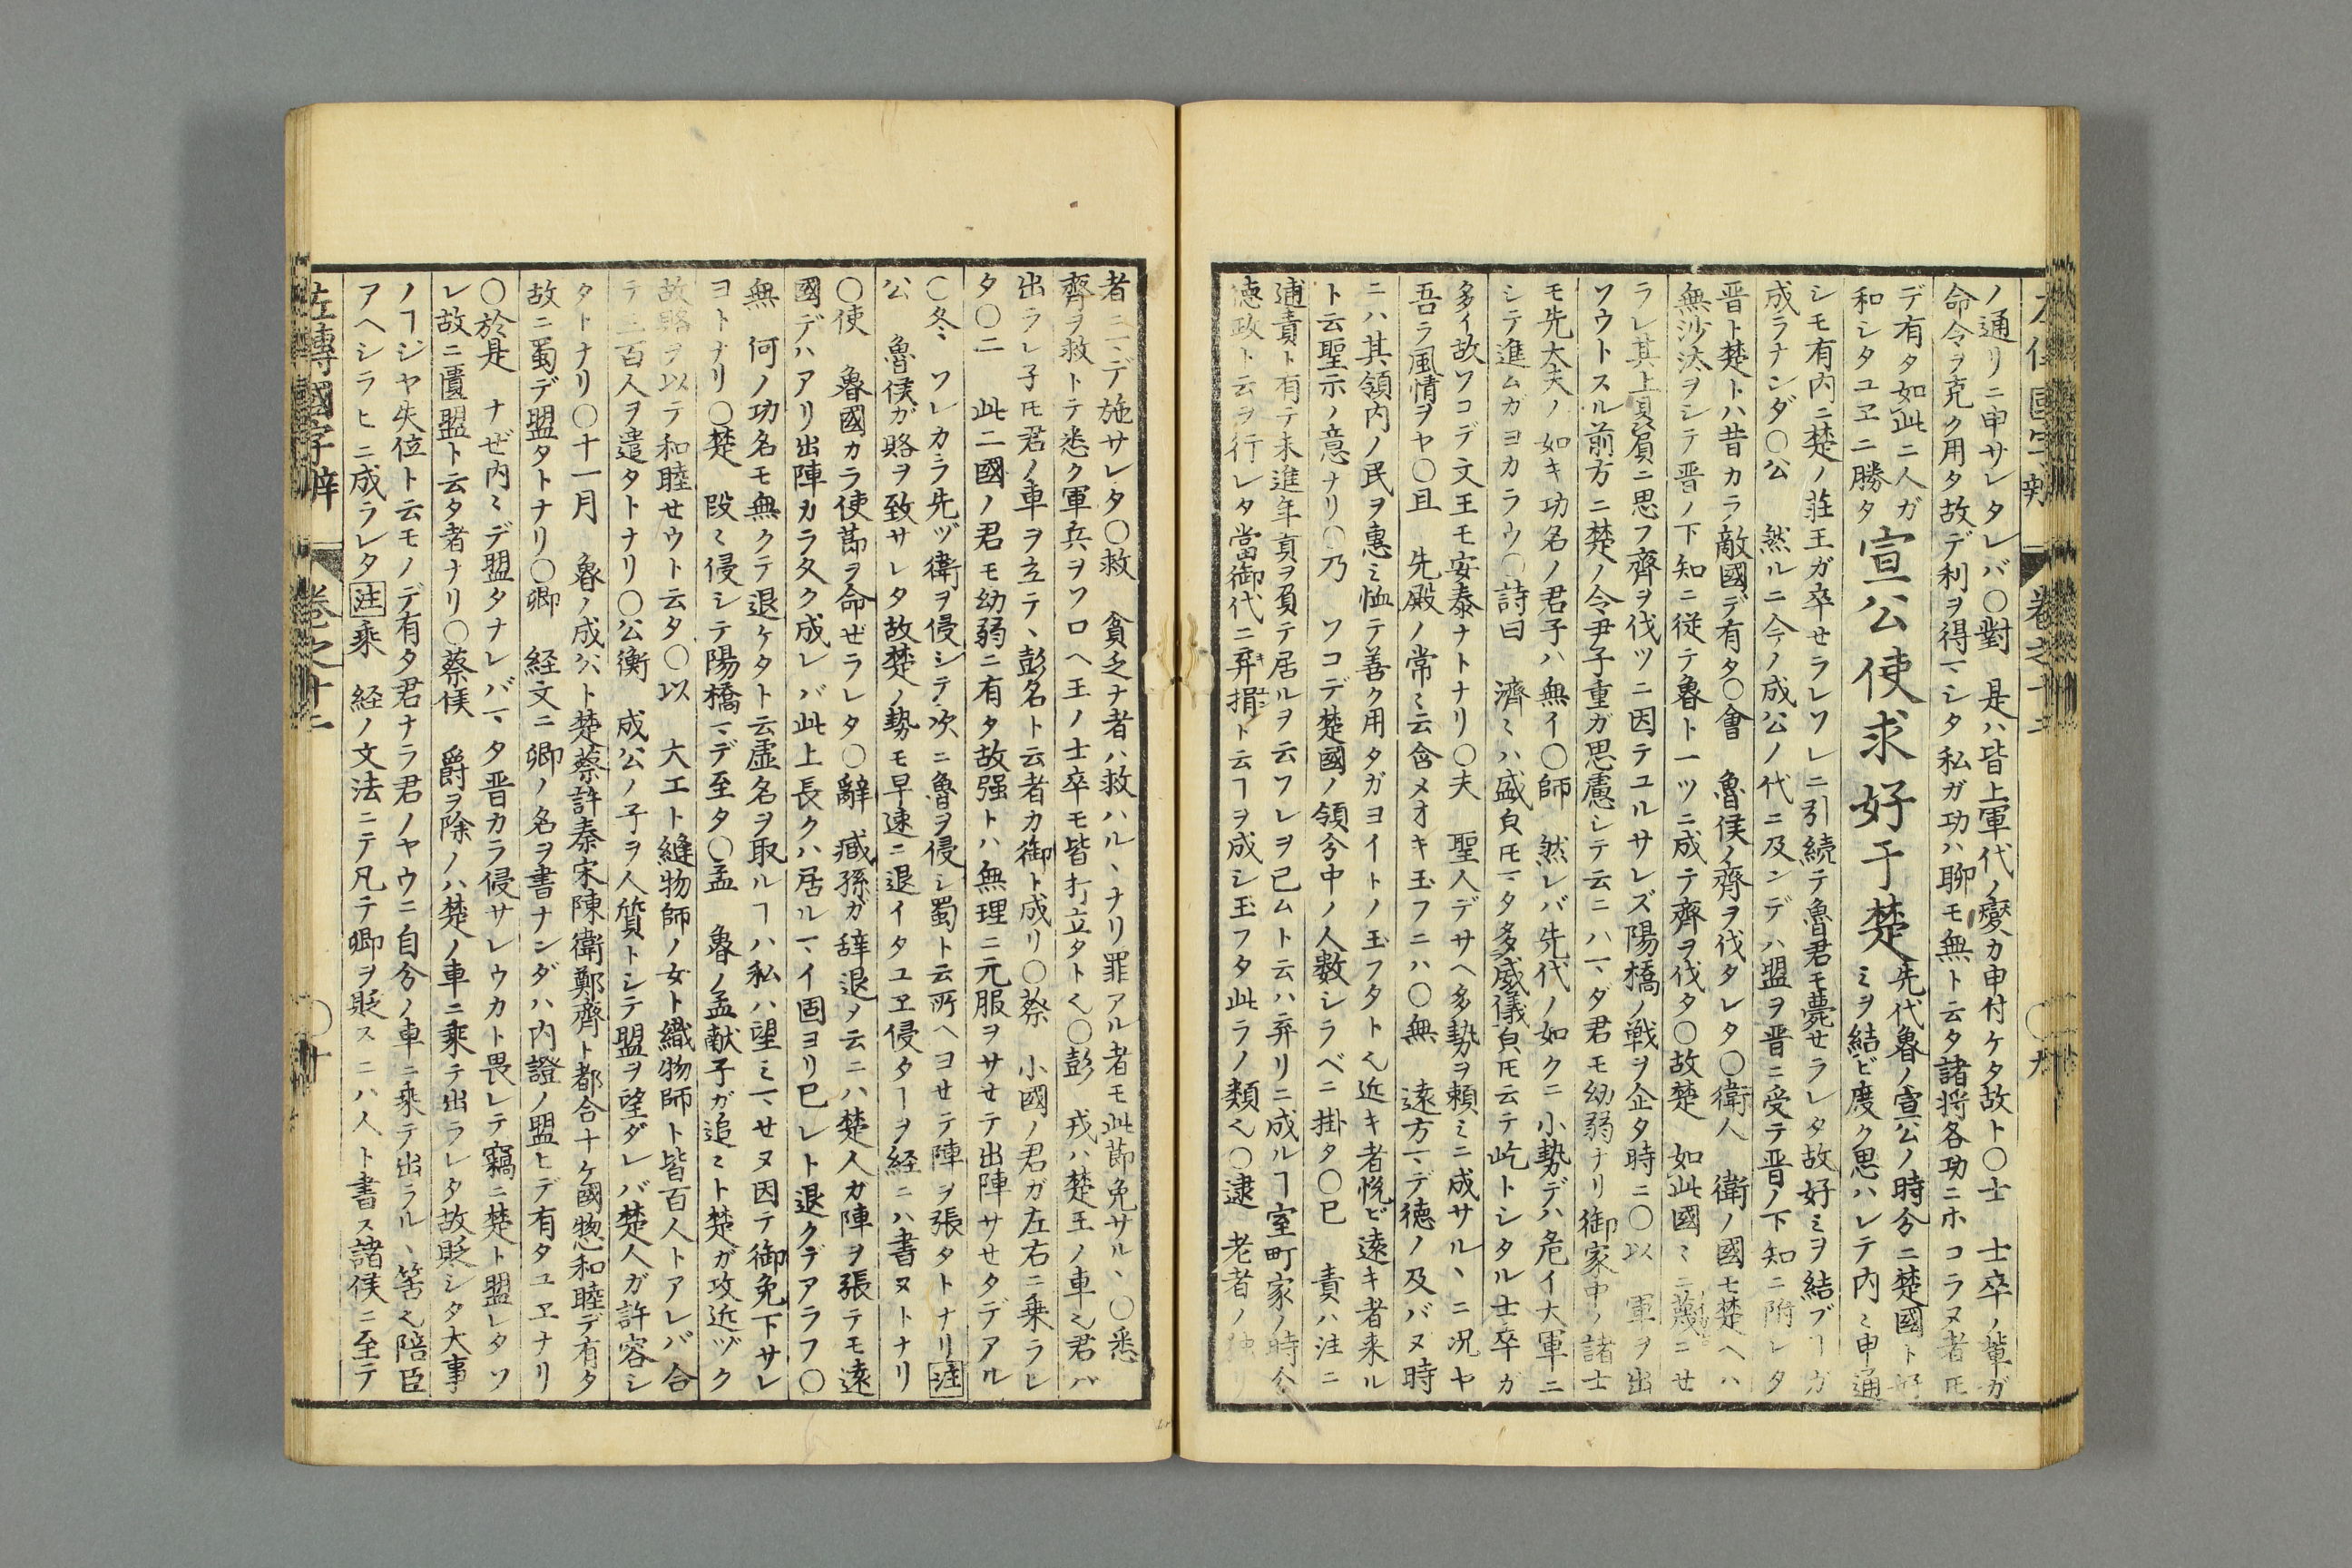 ノ通リニ申サレタレバ〇對　是ハ皆上軍代ノ燮カ申付ケタ故ト〇士　士卒ノ輩ガ
命令ヲ克ク用タ故デ利ヲ得ヿシタ私ガ功ハ聊モ無ト云タ諸将各功ニホコラヌ者ㇳモ
デ有タ如此ニ人ガ
和シタユヱニ勝タ
宣公使求好于楚
先代魯ノ宣公ノ時分ニ楚國ト好
ミヲ結ビ度ク思ハレテ内ミ申通
シモ有内ニ楚ノ荘王ガ卒セラレソレニ引続テ魯君モ薨セラレタ故好ミヲ結ブヿガ
成ラナンダ〇公　然ルニ今ノ成公ノ代ニ及ンデハ盟ヲ晋ニ受テ晋ノ下知ニ附レタ
晋ト楚トハ昔カラ敵國デ有タ〇會　魯侯ノ齊ヲ伐タレタ〇衛人　衛ノ國モ楚ヘハ
無沙汰ヲシテ晋ノ下知ニ従テ魯ト一ツニ成テ齊ヲ伐タ〇故楚　如此國ミニ蔑ニセ
ラレ其上員屓ニ思フ齊ヲ伐ツニ因テユルサレズ陽橋ノ戦ヲ企タ時ニ〇以　軍ヲ出
ソウトスル前方ニ楚ノ令尹子重ガ思慮シテ云ニハマダ君モ幼弱ナリ御家中ノ諸士
モ先大夫ノ如キ功名ノ君子ハ無イ〇師　然レバ先代ノ如クニ小勢デハ危イ大軍ニ
シテ進ムガヨカラウ〇詩曰　濟ミハ盛皃ㇳモマタ多威儀皃ㇳモ云テ屹トシタル士卒ガ
多イ故ソコデ文王モ安泰ナトナリ〇夫　聖人デサヘ多勢ヲ頼ミニ成サルヽニ况ヤ
吾ラ風情ヲヤ〇且　先殿ノ常ミ云含メオキ玉フニハ〇無　遠方マデ徳ノ及バヌ時
ニハ其領内ノ民ヲ惠ミ恤テ善ク用タガヨイトノ玉フタト也近キ者悦ビ遠キ者来ル
ト云聖示ノ意ナリ〇乃　ソコデ楚國ノ領分中ノ人数シラベニ掛タ〇已　責ハ注ニ
逋責ト有テ未進年貢ヲ負テ居ルヲ云ソレヲ已ムト云ハ弃リニ成ルヿ室町家ノ時分
徳政ト云ヲ行レタ當御代ニ弃捐ト云ヿヲ成シ玉フタ此ラノ類也〇逮　老者ノ独リ
者ニマデ施サレタ〇救　貪乏ナ者ハ救ハルヽナリ罪アル者モ此節免サルヽ〇悉
齊ヲ救トテ悉ク軍兵ヲソロヘ王ノ士卒モ皆打立タト也〇彭　戎ハ楚王ノ車也君ハ
出ラレ子ㇳモ君ノ車ヲ立テヽ彭名ト云者カ御ト成リ〇蔡　小國ノ君ガ左右ニ乗ラレ
タ〇二　此二國ノ君モ幼弱ニ有タ故强トハ無理ニ元服ヲサセテ出陣サセタデアル
〇冬　ソレカラ先ヅ衛ヲ侵シテ次ニ魯ヲ侵シ蜀ト云所ヘヨセテ陣ヲ張タトナリ注
公　魯侯ガ賂ヲ致サレタ故楚ノ勢モ早速ニ退イタユヱ侵タヿヲ経ニハ書ヌトナリ
〇使　魯國カラ使莭ヲ命ぜラレタ〇辭　臧孫ガ辞退メ云ニハ楚人ガ陣ヲ張テモ遠
國デハアリ出陣カラ久ク成レバ此上長クハ居ルマイ固ヨリ已レト退クデアラフ〇
無　何ノ功名モ無クテ退ケタト云虚名ヲ取ルヿハ私ハ望ミマセヌ因テ御免下サレ
ヨトナリ〇楚　段ミ侵シテ陽橋マデ至タ〇孟　魯ノ孟献子ガ追ミト楚ガ攻近ヅク
故賂ヲ以テ和睦セウト云タ〇以　大エト縫物師ノ女ト織物師ト皆百人トアレバ合
テ三百人ヲ遣タトナリ〇公衡　成公ノ子ヲ人質トシテ盟ヲ望ダレバ楚人ガ許容シ
タトナリ〇十一月　魯ノ成公ト楚蔡許秦宋陳衛鄭齊ト都合十ケ國惣和睦デ有タ
故ニ蜀デ盟タトナリ〇卿　経文ニ卿ノ名ヲ書ナンダハ内證ノ盟ヒデ有タユヱナリ
〇於是　ナぜ内ミデ盟タナレバマタ晋カラ侵サレウカト畏レテ竊ニ楚ト盟レタソ
レ故ニ匱盟ト云タ者ナリ〇蔡侯　爵ヲ除ノハ楚ノ車ニ乗テ出ラレタ故貶シタ大事
ノヿジヤ失位ト云モノデ有タ君ナラ君ノヤウニ自分ノ車ニ乗テ出ラルヽ筈也陪臣
アヘシラヒニ成ラレタ注乘　経ノ文法ニテ凡テ卿ヲ貶スニハ人ト書ス諸侯ニ至テ
左傳國字辯　卷之十二　〇十